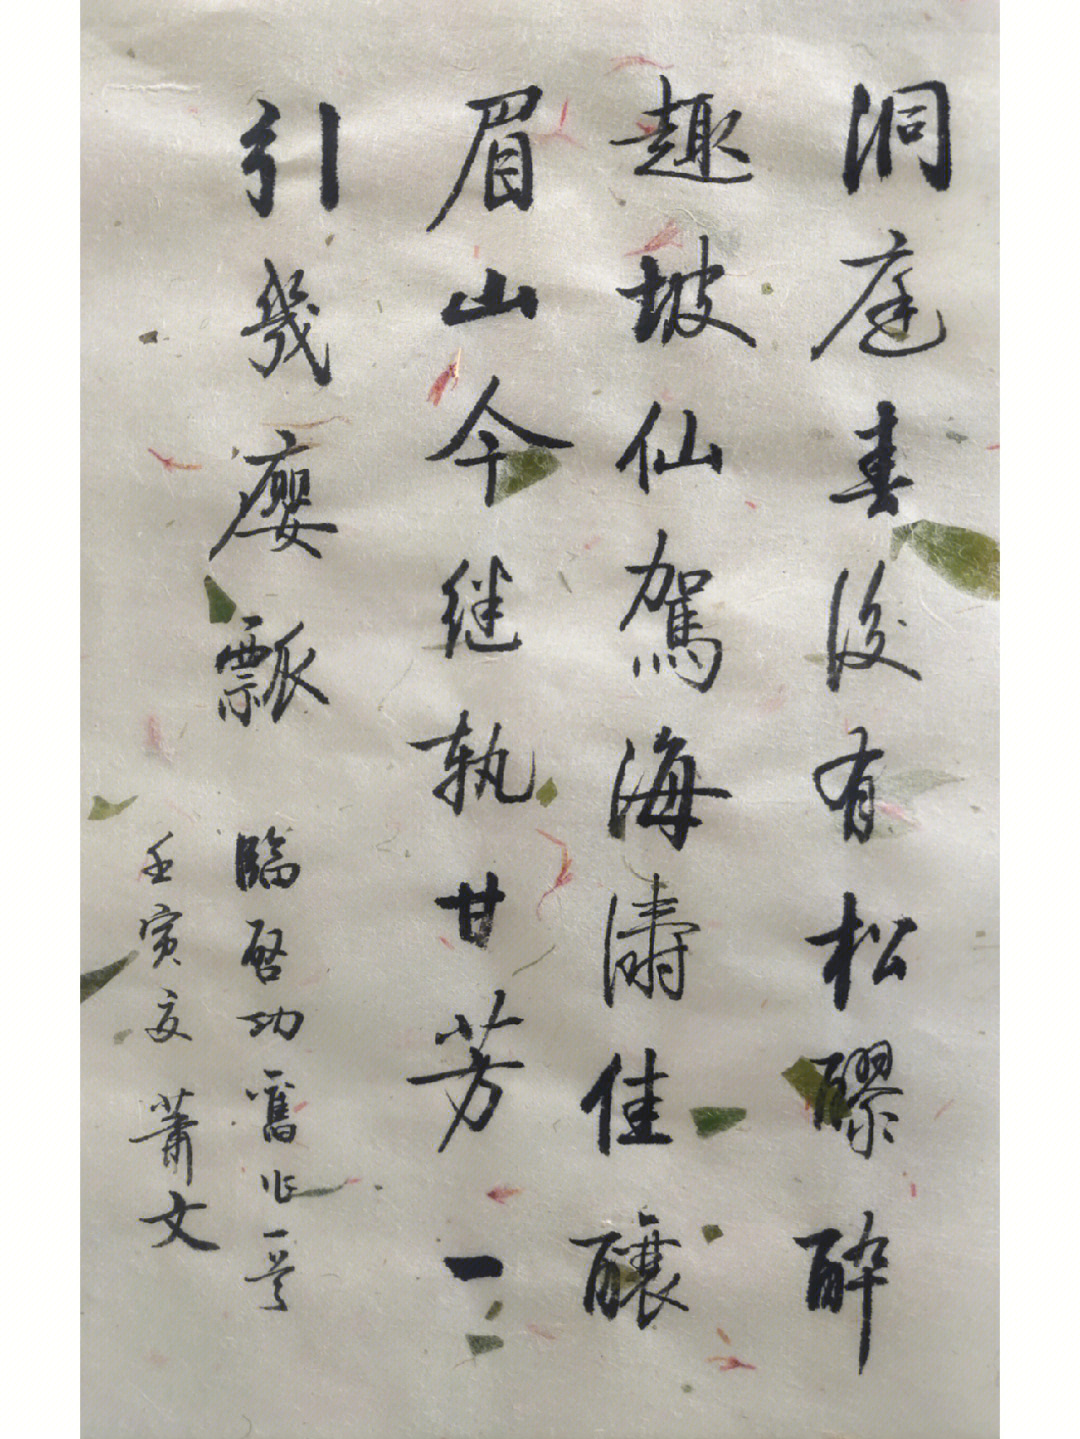 洞庭春後有松醪醉
趣坡仙駕海濤佳釀
眉山今继执甘芳一
引幾癭瓢
臨啓功舊作一首
壬寅夏 萧文